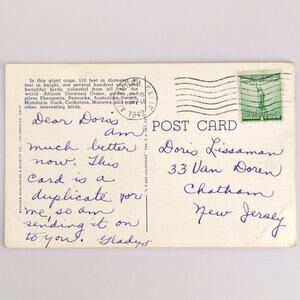 In this giant cage, 110 feet in diameter,
feet in height, are several hundred
beautiful birds, collected from all over the
world—African Crowned Crane, golden and
silver Pheasants, Peacocks, Australian Swans,
Mandarin Duck, Cockatoos, Macaws, and many
other interesting birds.
Dear Doris
am
much better
now. This
card is a
duplicate for
me, so am
sending it on
to you. Gladys
1942
POST CARD
Doris Lissaman
33 Van Doren
Chatham
New Jersey